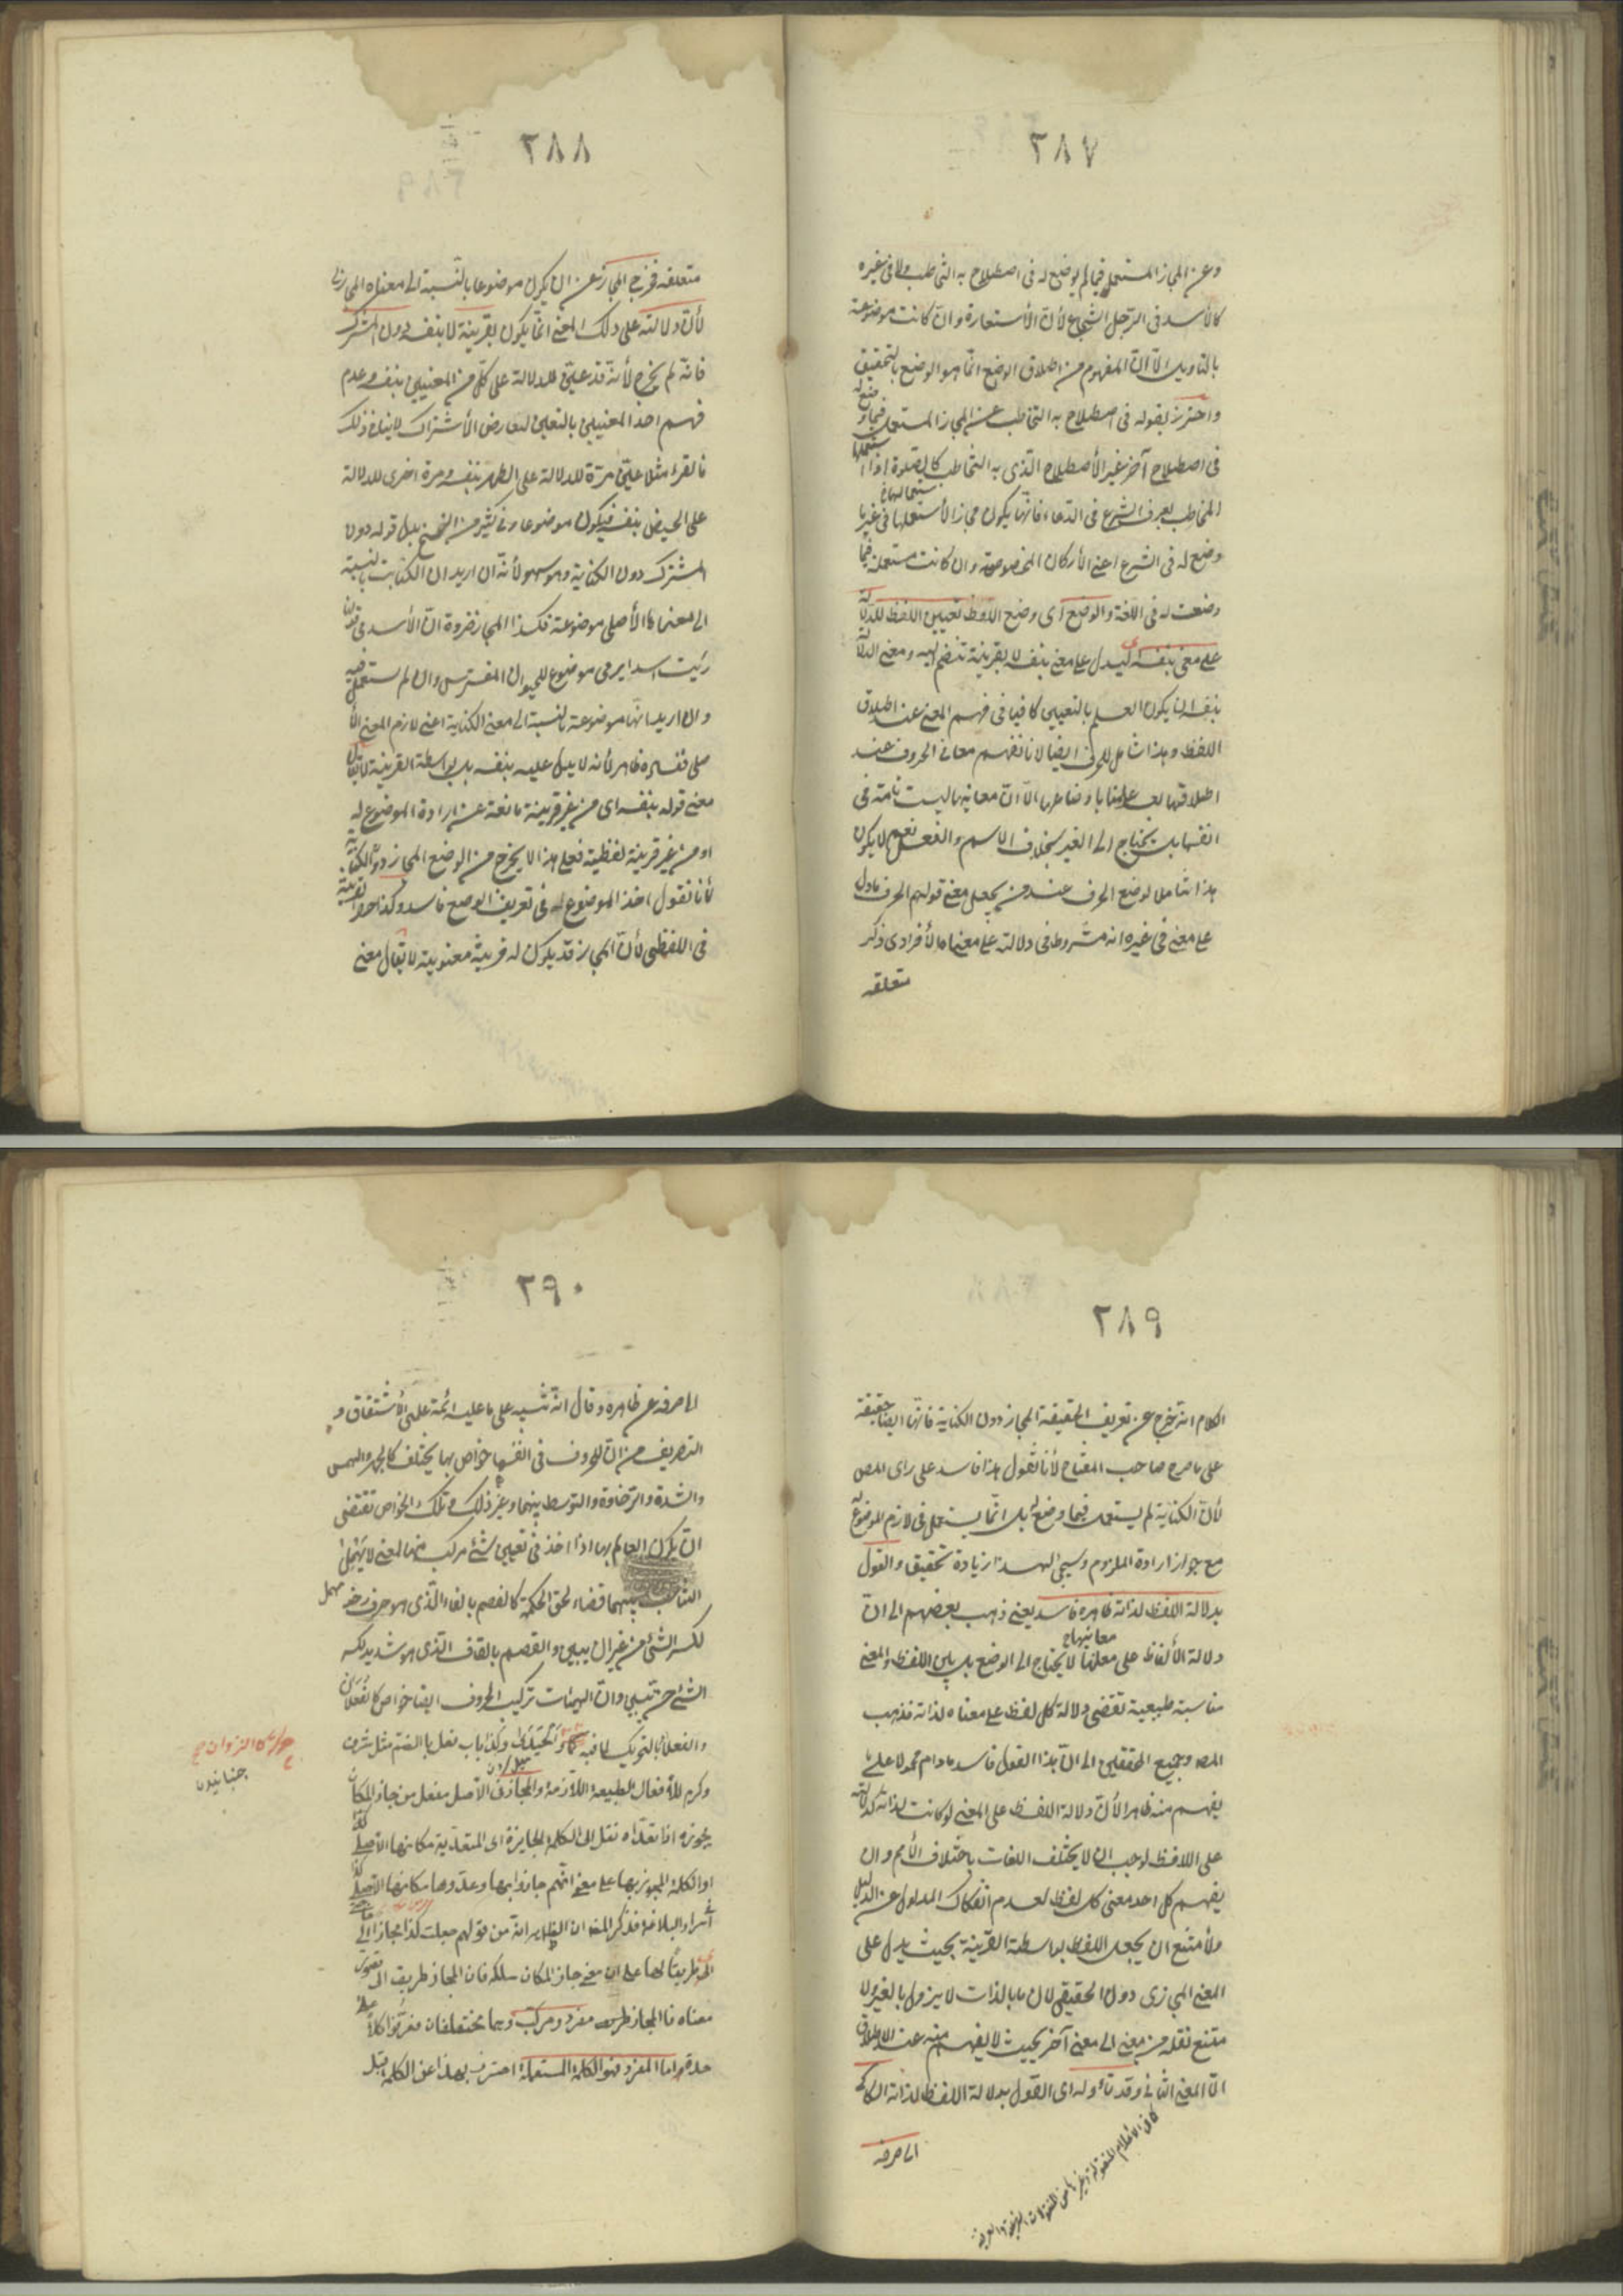 ٢٨٧
وعن المجاز المستعمل فيما لم يوضع له فى اصطلاح به التخاطب ولا فى غيره
كالأسد فى الرّجل الشجاع لأنّ الأستعارة وان كانت موضوعة
بالتاويل الّا انّ المفهوم من اطلاق الوضع انّما هو الوضع بالتحقيق
واحترز بقوله فى اصطلاح به التخاطب عن المجاز المستعمل فيما وضع له
فى اصطلاح آخر غير الأصطلاح الّذى به التخاطب كالصّلوة اذا استعملها
المخاطب بعرف الشرع فى الدّعاء فانّها يكون مجازا لأستعمالها فى غير ما
وضع له فى الشرع اعنى الأركان المخصوصة وان كانت مستعملة فيما
وضعت له فى اللغة والوضع اى وضع اللفظ تعيين اللفظ للدلالة
على معنى بنفسه اى ليدل على معنى بنفسه لا بقرينة تنضم اليه ومعنى الدلالة
بنفسه ان يكون العلم بالتعيين كافيا فى فهم المعنى عند اطلاق
اللفظ وهذا شامل للحرف ايضا لأنا نفهم معانى الحروف عند
اطلاقها بعد علمنا باوضاعها الّا انّ معانيها ليست تامة فى
انفسها بل يحتاج الى الغير بخلاف الاسم والفعل نعم لا يكون
هذا شاملا لوضع الحرف عند من يجعل معنى قولهم الحرف ما دل
على معنى فى غيره انه مشروط فى دلالته على معناه الأفرادى ذكر
متعلقه
٢٨٨
متعلقه فخرج المجاز عن ان يكون موضوعا بالنّسبة الى معناه المجازى
لأنّ دلالته على ذلك المعنى انّما يكون بقرينة لا بنفسه دون المشترك
فانّه لم يخرج لأنّه قد عيّن للدلالة على كلّ من المعنيين بنفسه وعدم
فهم احد المعنيين بالتعيين لعارض الأشتراك لا ينافى ذلك
فالقرء مثلا عيّن مرّة للدلالة على الطهر بنفسه ومرة اخرى للدلالة
على الحيض بنفسه فيكون موضوعا وفى كثير من النسخ بدل قوله دون
المشترك دون الكناية وهو سهو لأنّه ان اريد ان الكناية بالنسبة
الى معناها الأصلى موضوعة فكذا المجاز ضرورة انّ الأسد فى قولنا
رايت اسدا يرمى موضوع للحيوان المفترس وان لم يستعمل فيه
وان اريد انّها موضوعة بالنسبة الى معنى الكناية اعنى لازم المعنى الأ
صلى ففساده ظاهر لأنه لا يدل عليه بنفسه بل بواسطة القرينة لا يقال
معنى قوله بنفسه اى من غير قرينة مانعة عن ارادة الموضوع له
او من غير قرينة لفظية فعلى هذا لا يخرج من الوضع المجاز دون الكناية
لأنا نقول اخذ الموضوع له فى تعريف الوضع فاسد وكذا حصر القرينة
فى اللفظى لأنّ المجاز قد يكون له قرينة معنوية لا يقال معنى
٢٨٩
الكلام انه خرج عن تعريف الحقيقة المجاز دون الكناية فانّها ايضا حقيقة
على ما صرح صاحب المفتاح لأنا نقول هذا فاسد على راى المص
لأنّ الكناية لم يستعمل فيما وضع له بل انّما يستعمل فى لازم الموضوع له
مع جواز ارادة الملزوم وسيجئ لهذا زيادة تحقيق والقول
بدلالة اللفظ لذاته ظاهره فاسد يعنى ذهب بعضهم الى انّ
دلالة الألفاظ على معانيها لا يحتاج الى الوضع بل بين اللفظ والمعنى
مناسبة طبيعية تقتضى دلالة كل لفظ على معناه لذاته فذهب
المصـ وجميع المحققين الى انّ هذا القول فاسد ما دام محمولا على ما
يفهم منه ظاهرا لأنّ دلالة اللفظ على المعنى لو كانت لذاته كدلالته
على اللافظ لوجب ان لا يختلف اللغات باختلاف الأمم وان
يفهم كل احد معنى كل لفظ لعدم انفكاك المدلول عن الدليل
ولأمتنع ان يجعل اللفظ بواسطة القرينة بحيث يدل على
المعنى المجازى دون الحقيقى لأن ما بالذات لا يزول بالغير ولا
متنع نقله من معنى الى معنى آخر بحيث لا يفهم منه عند الاطلاق
الّا المعنى الثانى وقد تأوله اى القول بدلالة اللفظ لذاته السكاكى
كما فى الأعلام المنقولة وغيرها من المنقولات الشرعية والعرفية
اى صرفه
٢٩٠
اى صرفه عن ظاهره وقال انه تنبيه على ما عليه ائمة علمى الأشتقاق و
التصريف من انّ للحروف فى انفسها خواص بها يختلف كالجهر والهمس
والشدة والرّخاوة والتوسط بينهما وغير ذلك وتلك الخواص تقتضى
ان يكون العالم بها اذا اخذ فى تعيين شئ مركب منها لمعنى لا يهمل
التناسب بينهما قضاء لحق الحكمة كالفصم بالفاء الّذى هو حرف رخو
لكسر الشئ من غير ان يبين والقصم بالقاف الّذى هو شديد لكسر
الشئ حتى يبين وانّ لهيئات تركيب الحروف ايضا خواص كالفعلان
والفعلى بالتحريك لما فيه حركة كالنزوان والحيدى وكذا باب فعل بالضم مثل شرف
وكرم للأفعال الطبيعية اللّازمة والمجاز فى الأصل مفعل من جاز المكان
يجوزه اذا تعدّاه نقل الى الكلمة الجايزة اى المتعدّية مكانها الأصلى
او الكلمة المجوز بها على معنى انّهم جازوا بها وعدّوها مكانها الأصلى كذا فى
أسرار البلاغة وذكر المصـ ان الظاهر انّه من قولهم جعلت كذا مجازا الى حاجتى
اى طريقا لها على ان معنى جاز المكان سلكه فان المجاز طريق الى تصور
معناه فالمجاز مفرد ومركب وهما مختلفان فعرّفوا كلا على
حدة اما المفرد فهو الكلمة المستعملة احترز بها عن الكلمة قبل